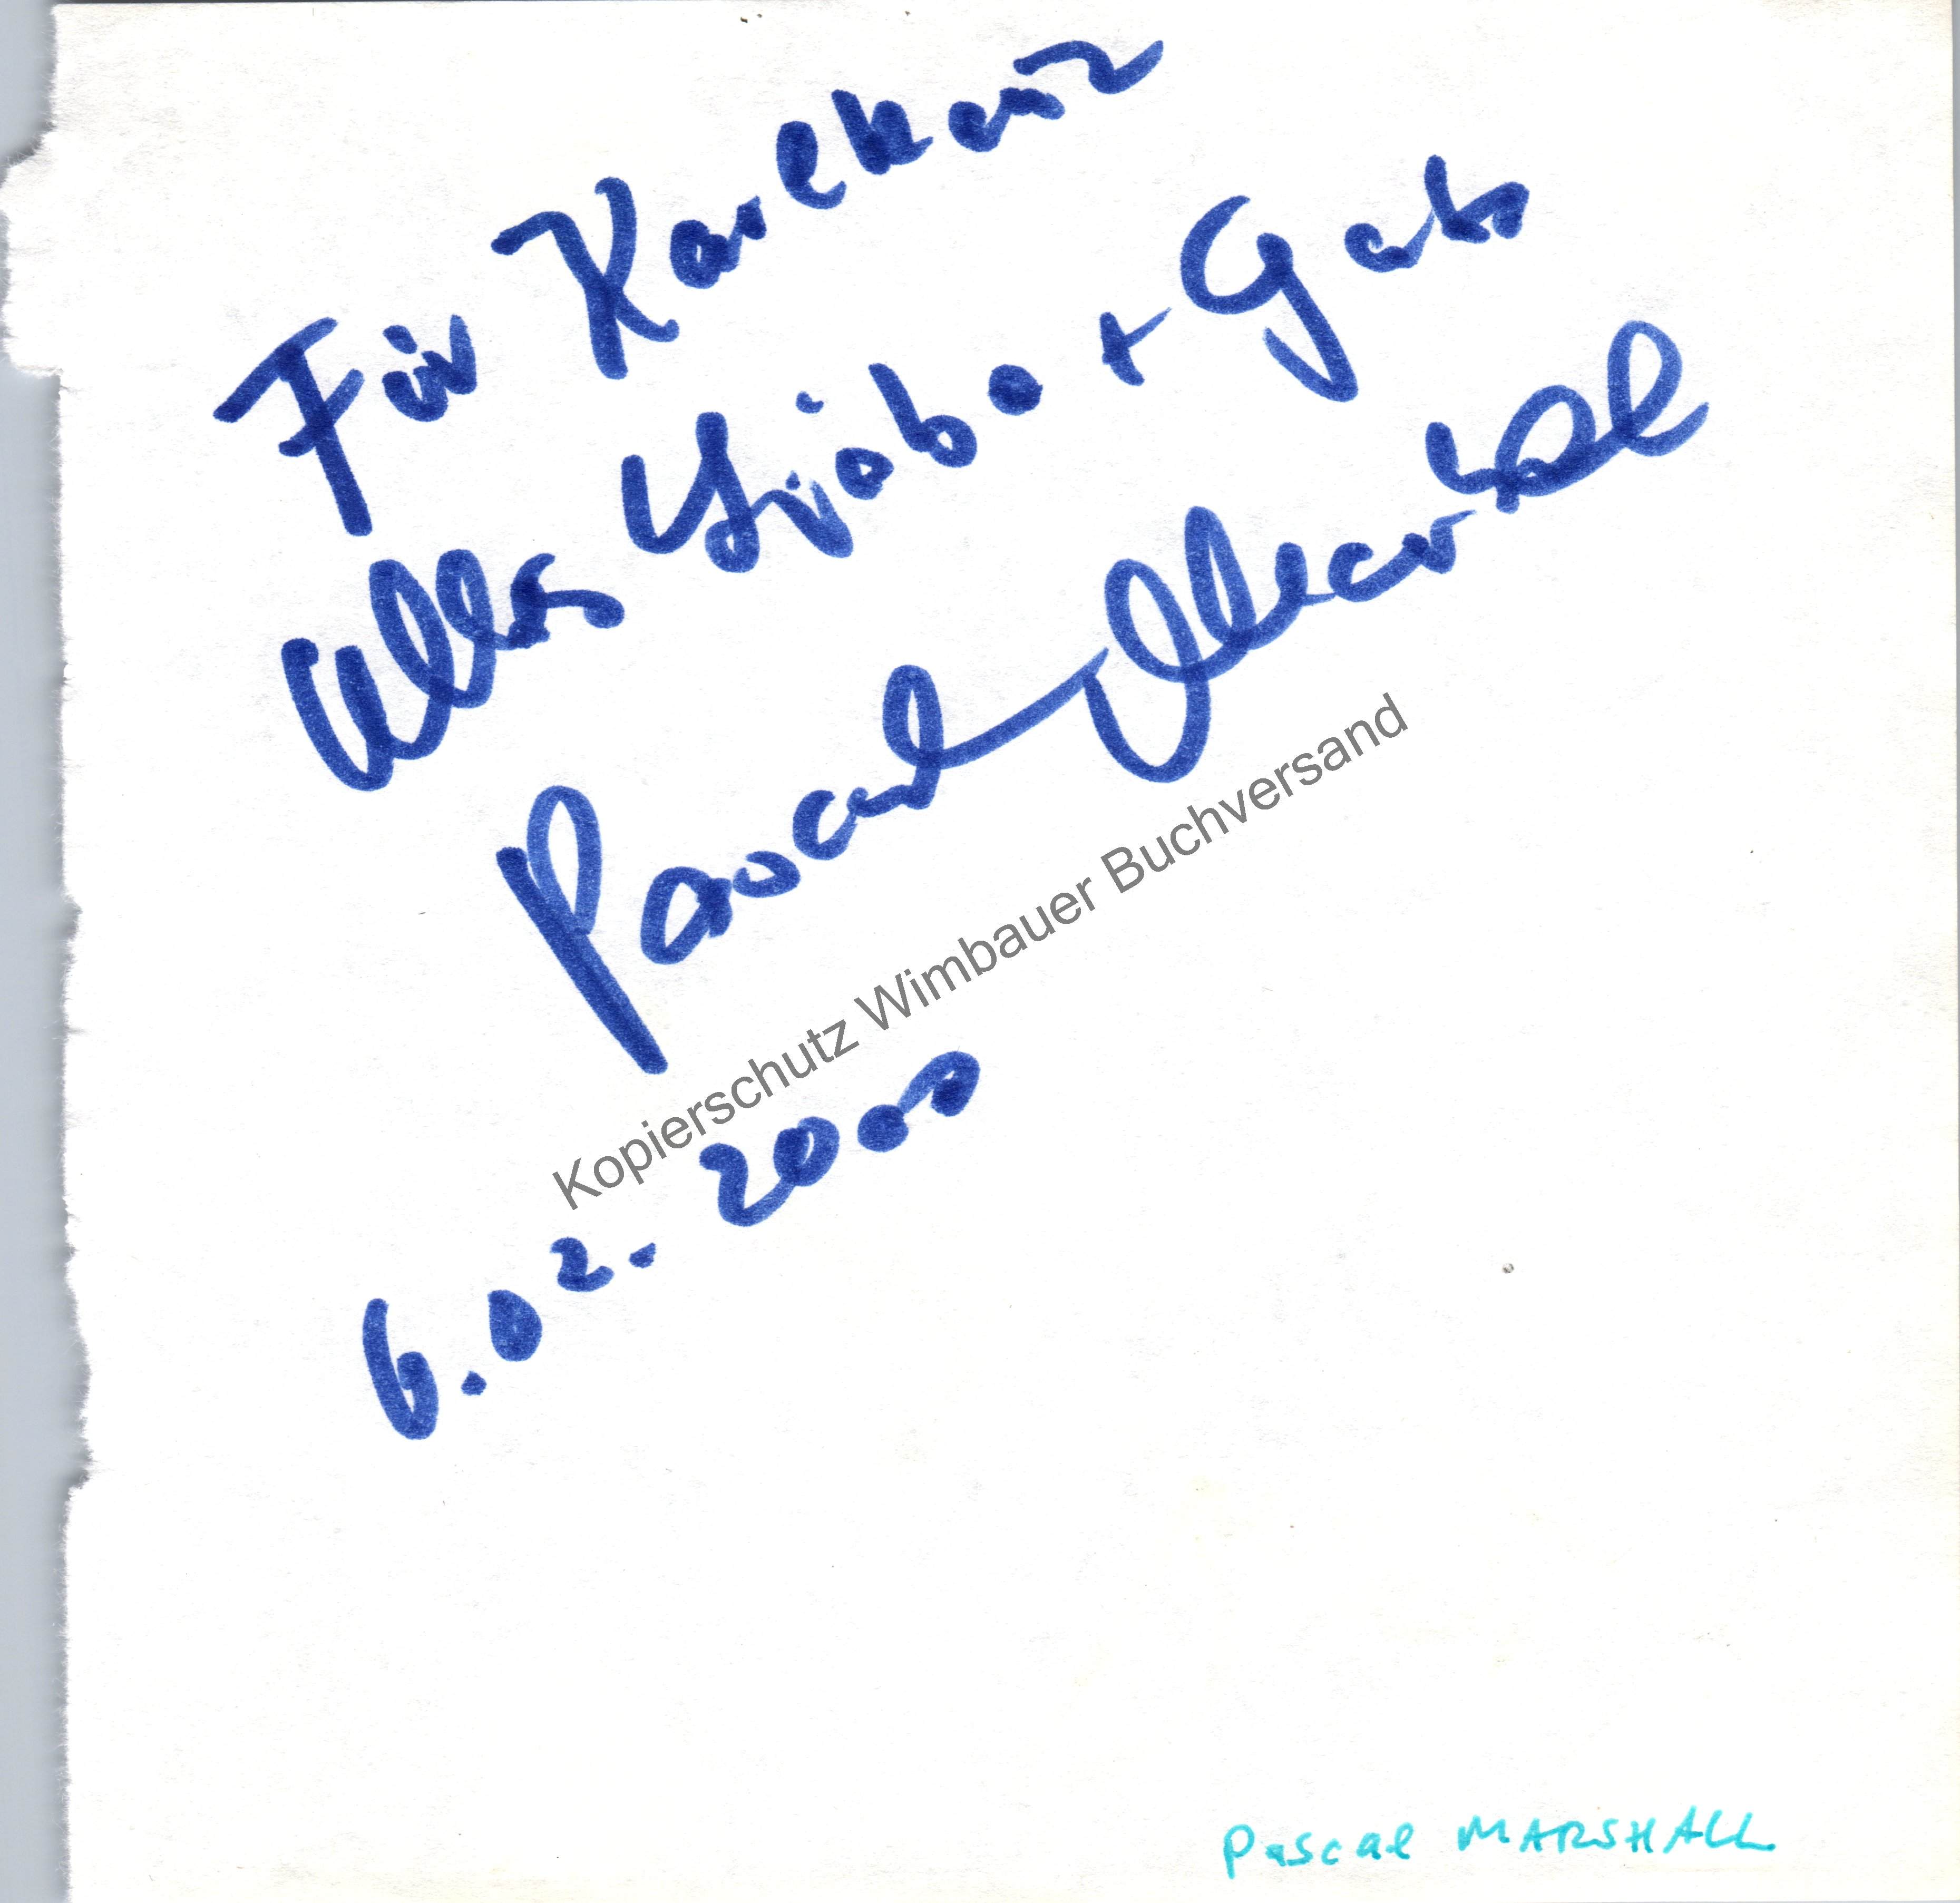 Für Karlheinz
Alles Liebe + Gute
Pascal Marshall
Kopierschutz Wimbauer Buchversand
6.02.2000
Pascal MARSHALL